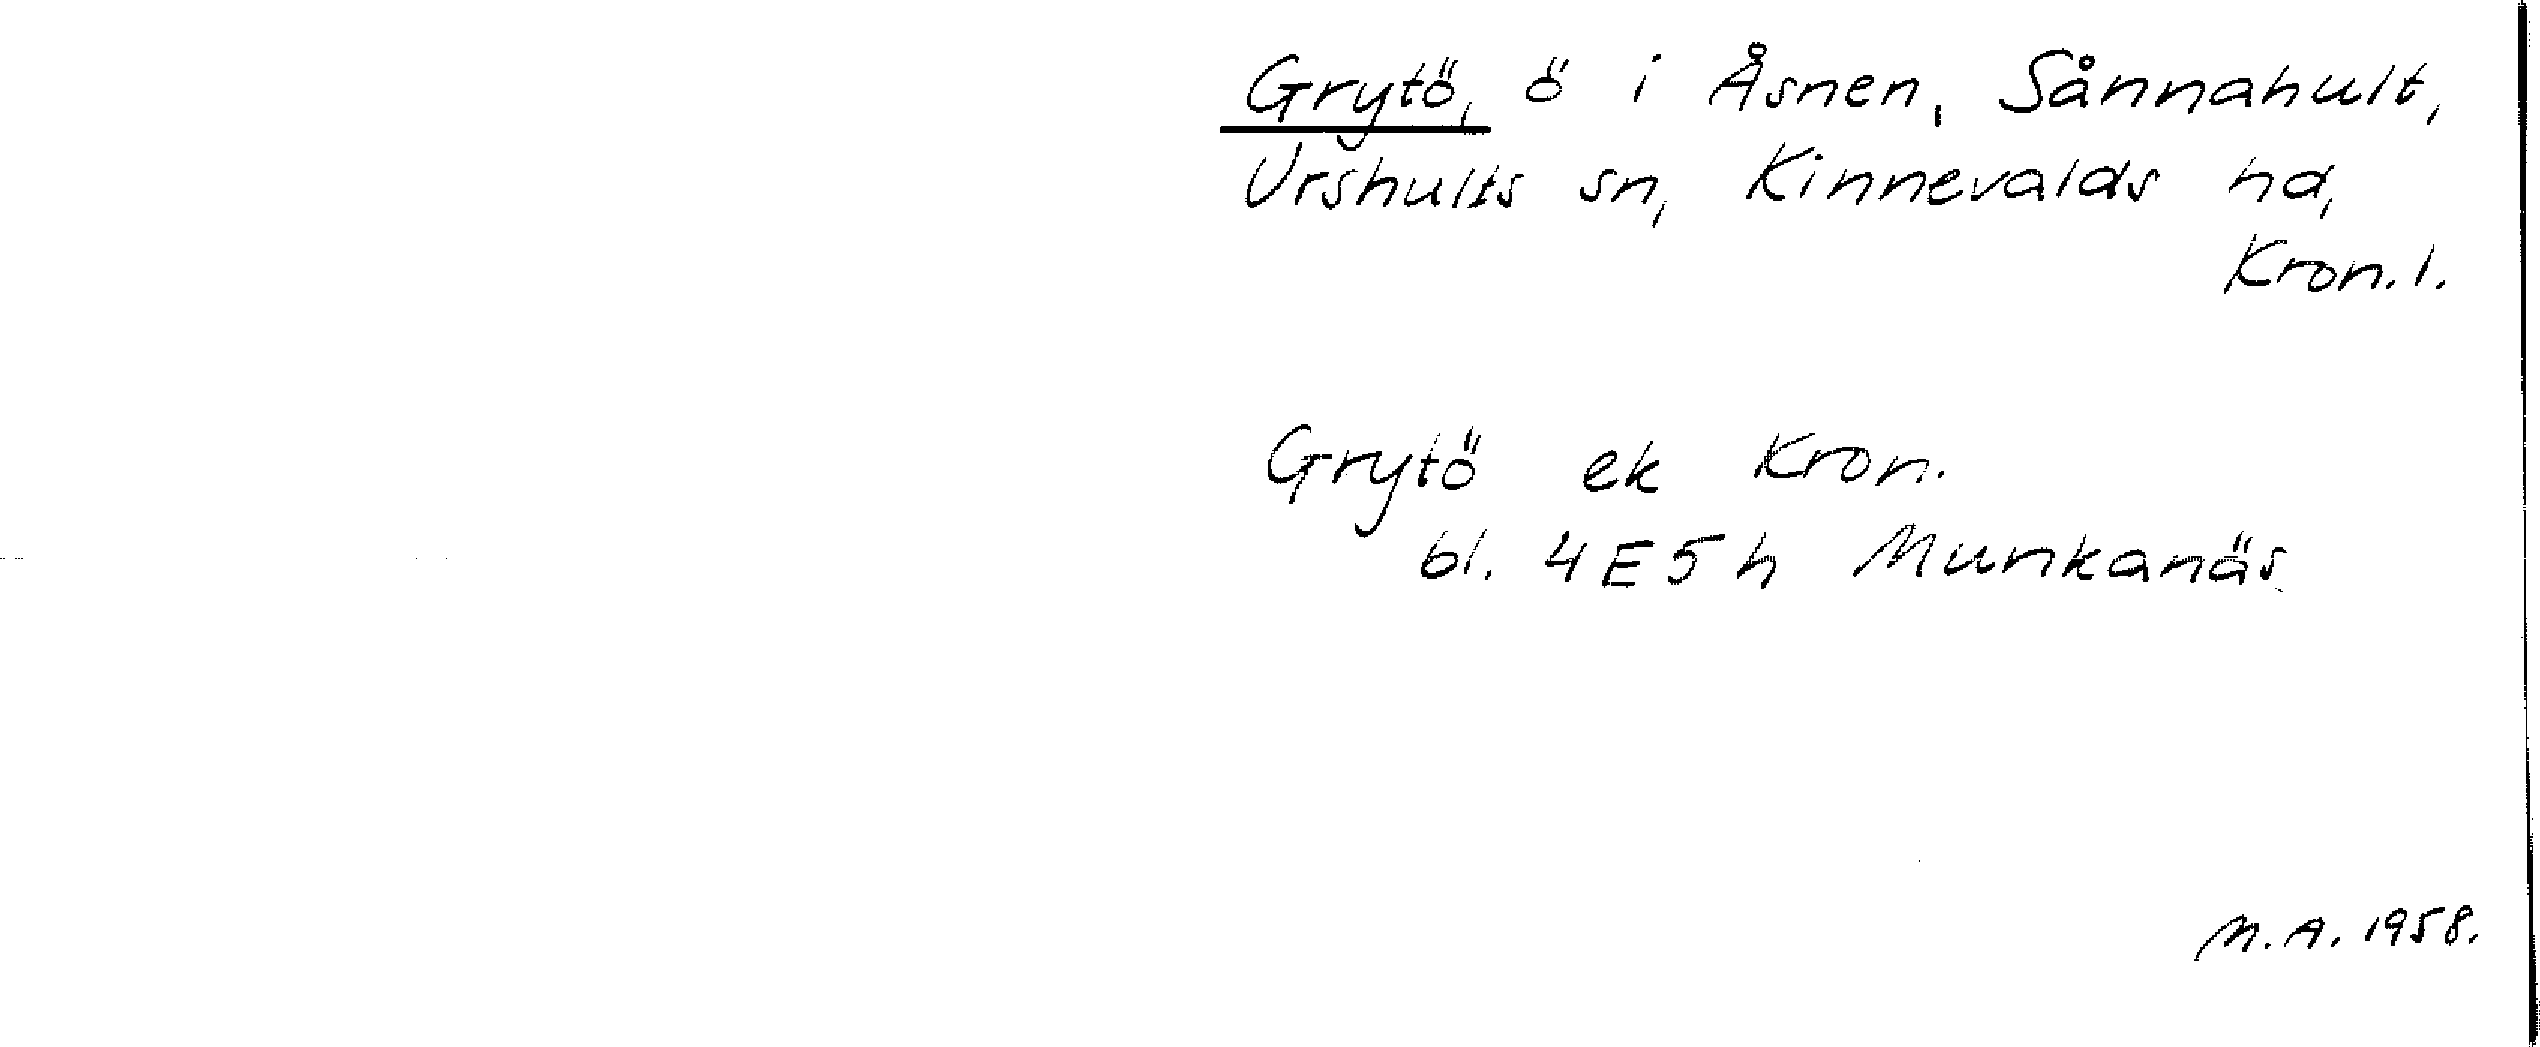 Grytö, ö i Åsnen, Sånnahult,
Urshults sn, Kinnevalds hd,
Kron. l.
Grytö ek Kron.
bl. 4E5h Munkanäs
M.A. 1958.